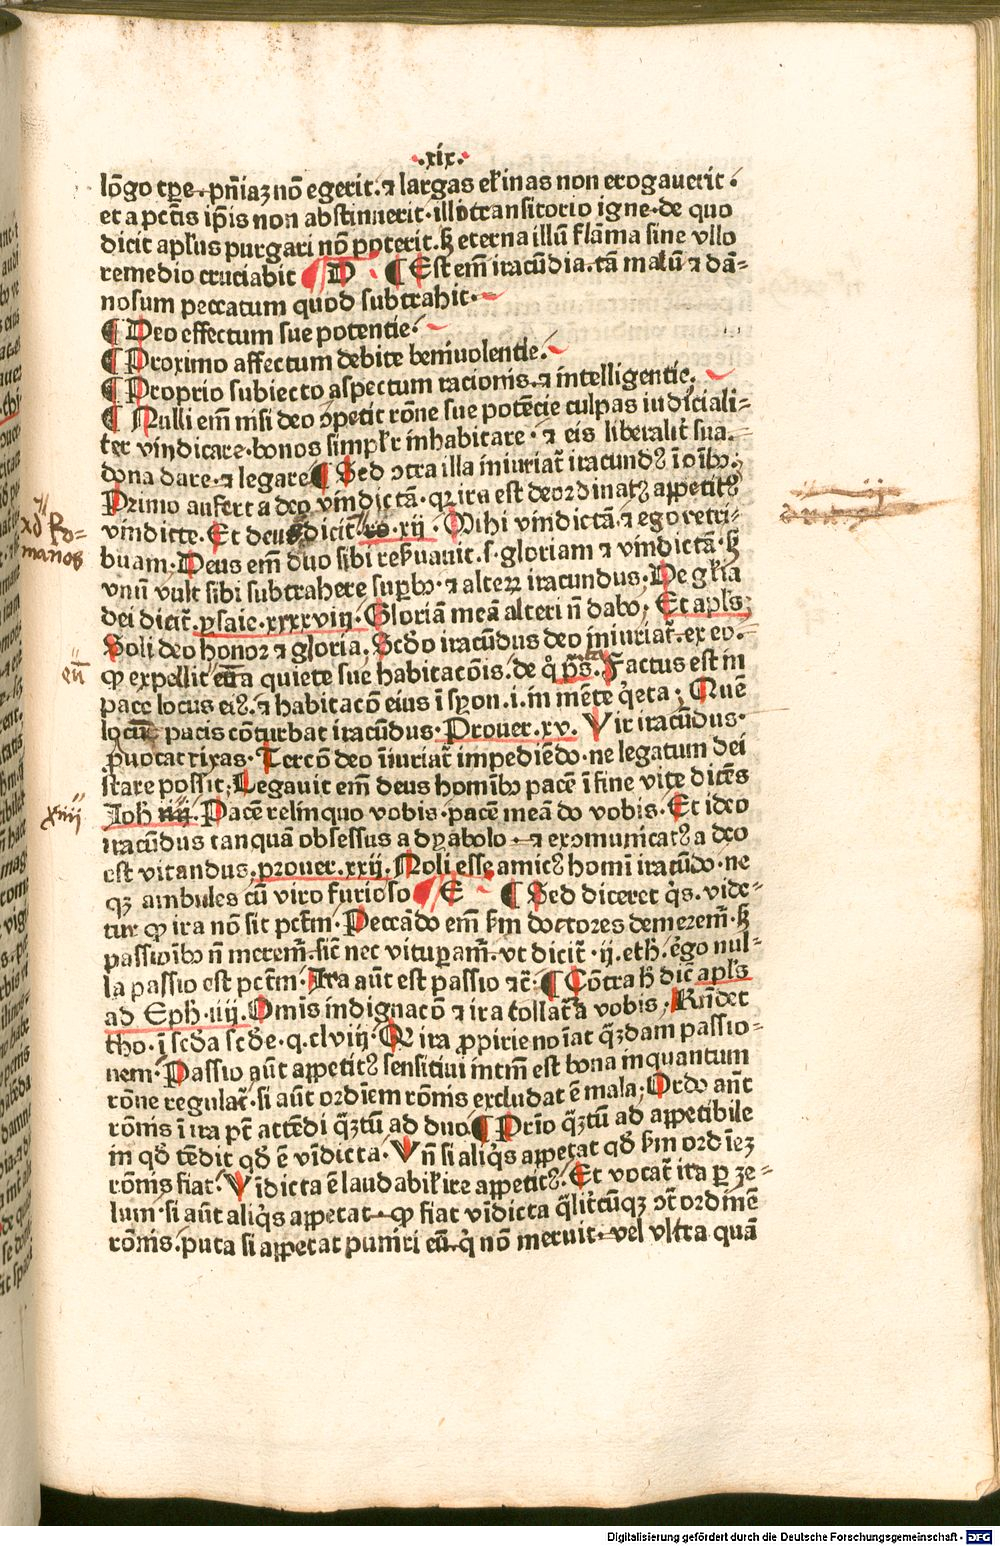 .xix.
lõgo tꝑe. pñiaꝫ nõ egerit. ⁊ largas eľinas non erogauerit.
et a pctĩs ip̃is non abstinuerit. illo transitorio igne. de quo
dicit apľus purgari nõ poterit. ſꝫ eterna illũ flãma sine vllo
remedio cruciabit ¶ D ¶ Est em̃ iracũdia. tã malũ ⁊ dã-
nosum peccatum quod subtrahit.
¶ Deo effectum sue potentie.
¶ Proximo affectum debite beniuolentie.
¶ Proprio subiecto aspectum racionis. ⁊ intelligentie.
¶ Nulli em̃ nisi deo ꝯpetit rõne sue potẽcie culpas iudiciali-
ter vindicare. bonos simpľr inhabitare. ⁊ eis liberalit̃ sua.
dona dare. ⁊ legare ¶ Sed ꝯtra illa iniuriat̃ iracundꝰ ĩ oĩbꝰ.
Primo aufert a deo vindictã. qꝛ ira est deordinatꝰ appetitꝰ
vindicte. Et deus dicit. ro. xij. Mihi vindictã. ⁊ ego retri-
buam. Deus em̃ duo sibi reẜuauit. s. gloriam ⁊ vindictã. ſꝫ
vnũ vult sibi subtrahere suꝑbꝰ. ⁊ alterꝝ iracundus. De gľia
dei dicit̃. ysaie. xxxxviij. Gloriã meã alteri ñ dabo; Et apľs;
Soli deo honor ⁊ gloria. Scďo iracũdus deo iniuriat̃. ex eo.
ꝙ expellit eũ a quiete sue habitacõis. de q̊ p̃s. Factus est in
pace locus eiꝰ. ⁊ habitacõ eius ĩ syon. i. in mẽte q̇eta; Quẽ
locũ pacis cõturbat iracũdus. Prouer. xv. Vir iracũdus.
ꝓuocat rixas. Tercõ deo ĩiuriat̃ impediẽdo. ne legatum dei
stare possit. Legauit em̃ deus homĩbꝰ pacẽ ĩ fine vite dicẽs
Joh̃ iiij. Pacẽ relinquo vobis. pacẽ meã do vobis. Et ideo
iracũdus tanquã obsessus a dyabolo. ⁊ exꝯmunicatꝰ a deo
est vitandus. prouer. xxij. Noli esse amicꝰ homĩ iracũdo. ne
qꝫ ambules cũ viro furioso ¶ E ¶ Sed diceret q̇s. vide-
tur ꝙ ira nõ sit pctm̃. Peccãdo em̃ ẜm doctores demerem̃. ſꝫ
passioĩbꝰ ñ merem̃. sic̃ nec vituꝑam̃. vt dicit̃. ij. eth̃. ergo nul-
la passio est pctm̃. Ira aũt est passio ⁊c̃. ¶ Cõtra h̃ dic̃ apľs
ad Eph̃. iiij. Omĩs indignacõ ⁊ ira tollat̃ a vobis. Rñdet
tho. ĩ scďa scďe. q. clviij. Q ira ꝓpirie noĩat q̃ꝫdam passio-
nem. Passio aũt appetitꝰ sensitiui intm̃ est bona inquantum
rõne regulat̃. si aũt ordiẽm rõnis excludat ẽ mala; Ordo aũt
rõnis ĩ ira põt attẽdi q̃ꝫtũ ad duo ¶ Prio q̃ꝫtũ ad appetibile
in qď tẽdit qď ẽ vĩdicta. Vñ si aliq̇s appetat qď ẜm ordĩeꝫ
rõnis fiat. Vĩdicta ẽ laudabiľ ire appetitꝰ. Et vocat̃ ira ꝑ ze-
lum. si aũt aliq̇s appetat. ꝙ fiat vĩdicta q̃lit̃cũqꝫ ꝯt̃ ordinẽ
rõnis. puta si appetat puniri eũ. q̇ nõ meruit. vel vltra quã
xij Ro-
manos
eũ
xiiij